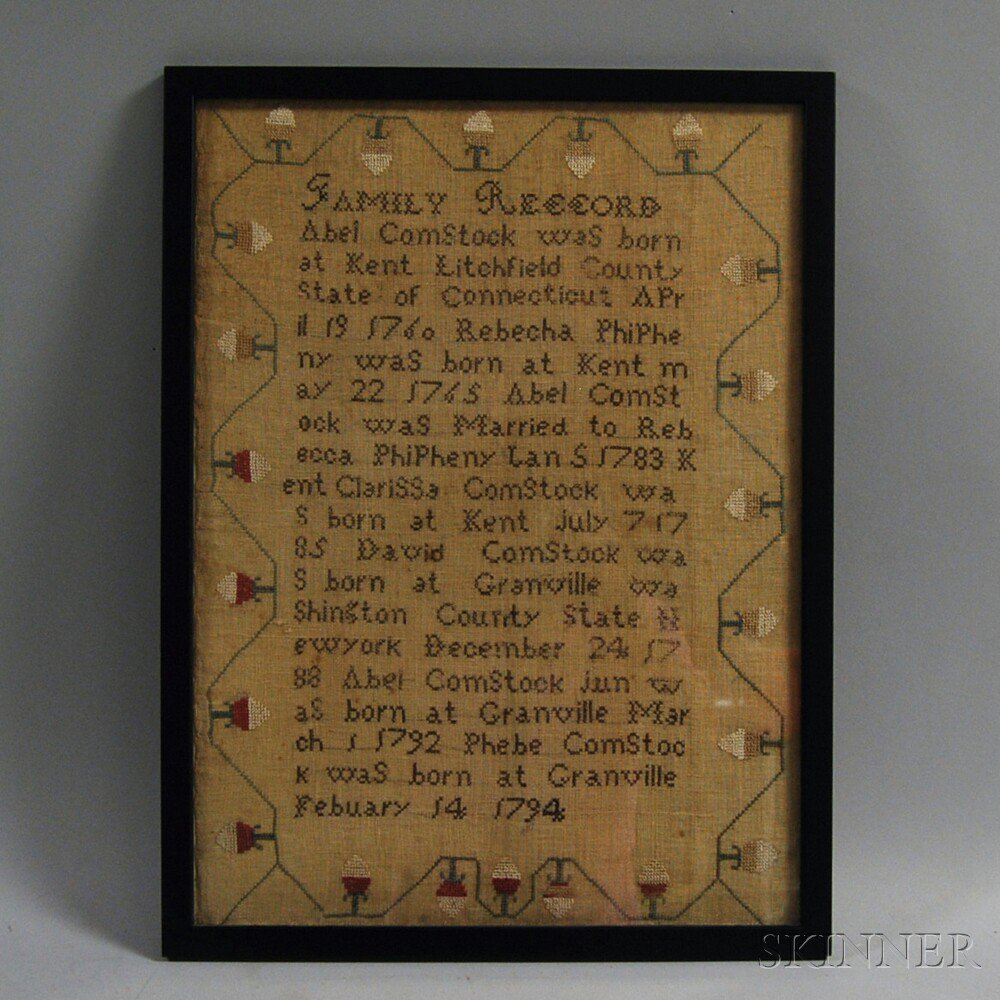 Family Reccord
Abel ComStock waS born
at Kent Litchfield County
State of Connecticut APr
il 19 1760 Rebecha PhiPhe
ny waS born at Kent m
ay 22 1765 Abel ComSt
ock waS Married to Reb
ecca PhiPheny Ian 5 1783 K
ent ClariSSa ComStock wa
S born at Kent July 7 17
85 David ComStock wa
S born at Granville wa
Shington County State N
ewyork December 24 17
88 Abel ComStock jun w
aS born at Granville Mar
ch 1 1792 Phebe ComStoc
k waS born at Granville
Febuary 14 1794
SKINNER